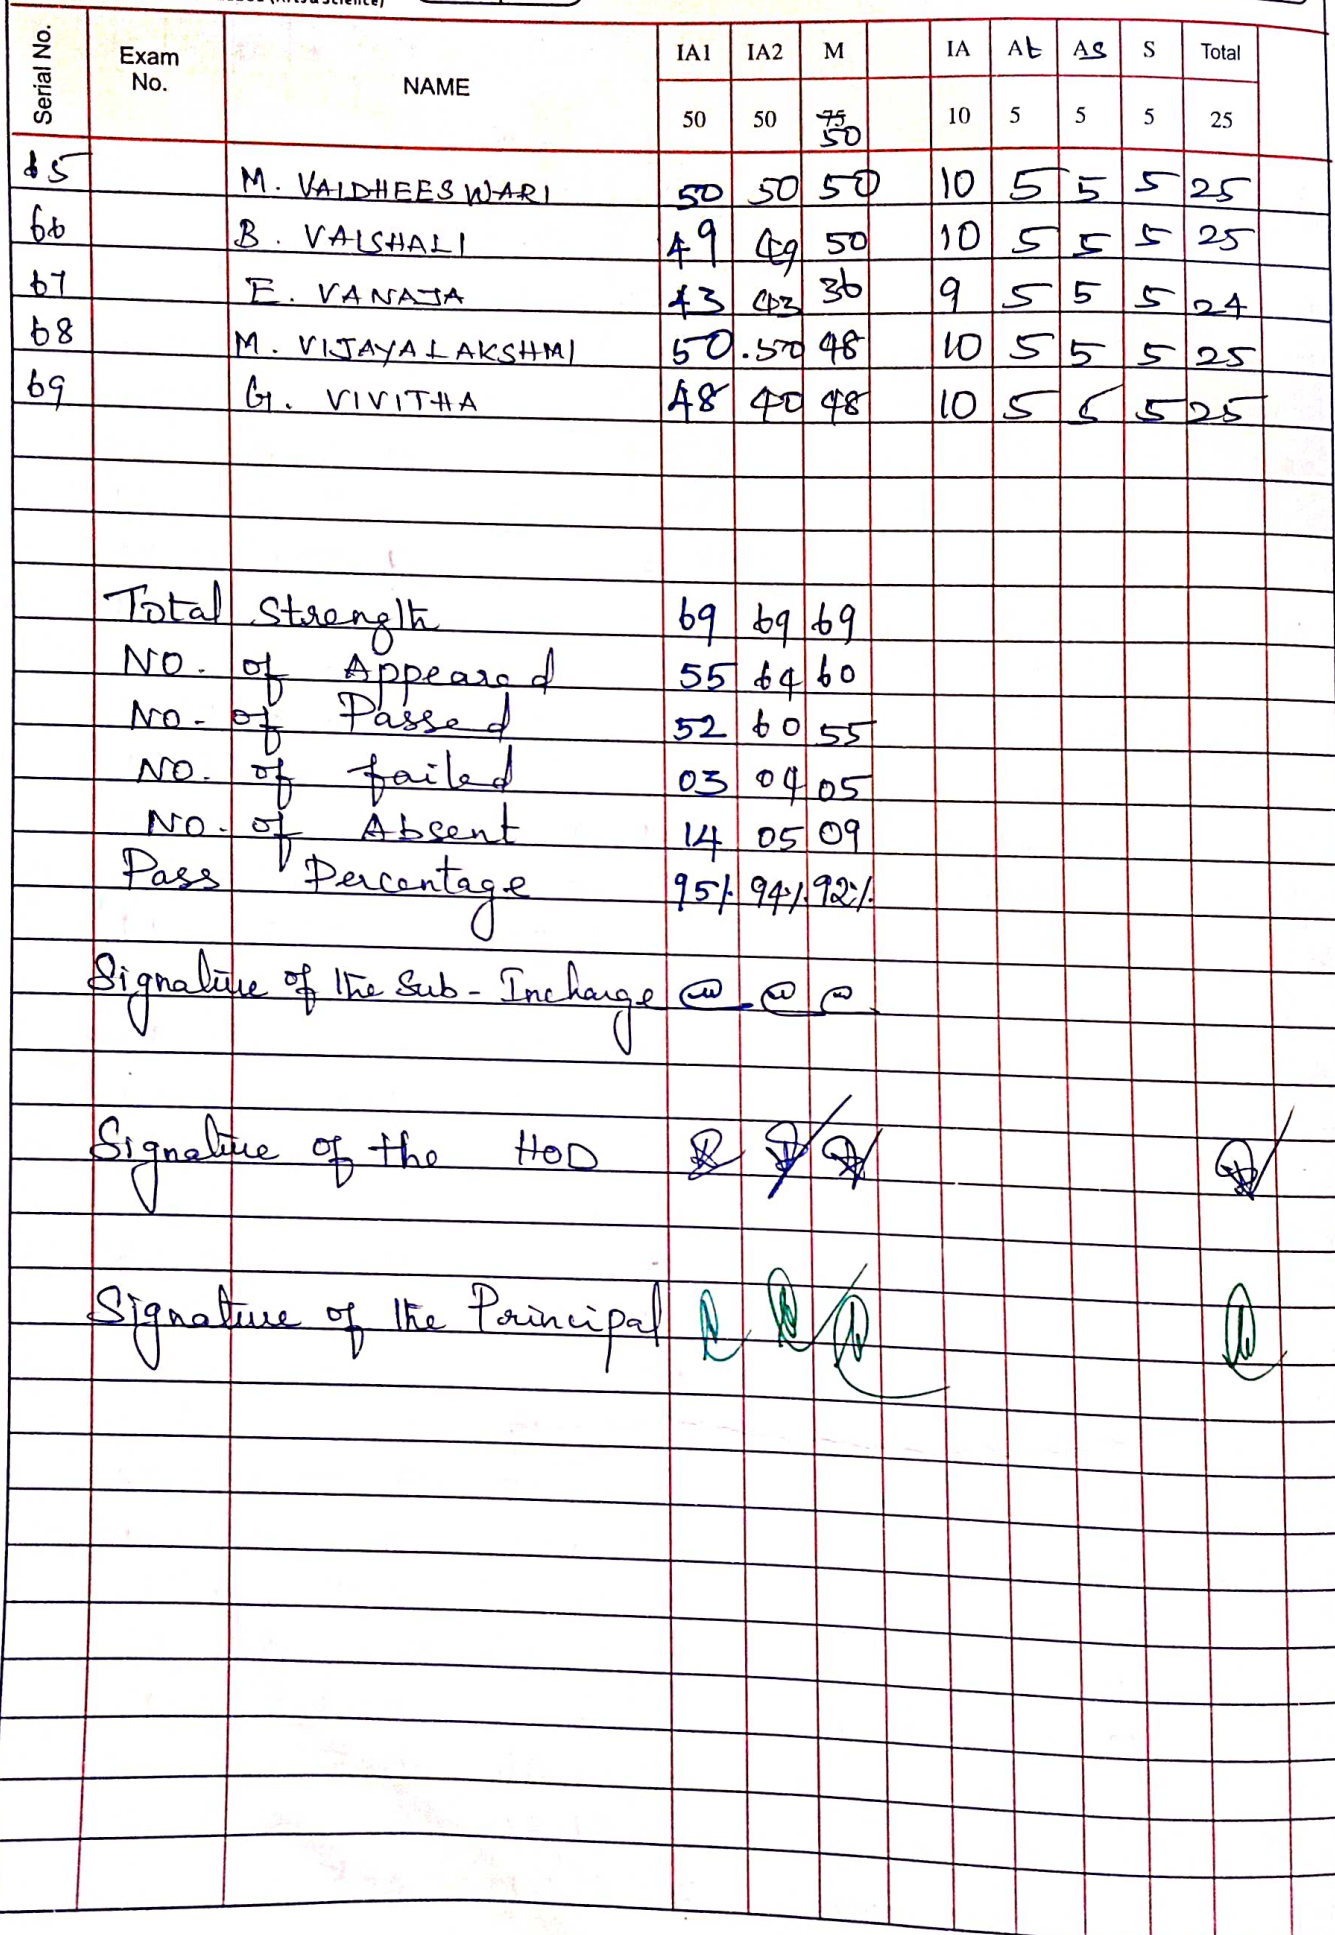 Serial No. Exam No. NAME IA1 IA2 M IA At As S Total
50 50 75 50 10 5 5 5 25
65 M. VAIDHEESWARI 50 50 50 10 5 5 5 25
66 B. VAISHALI 49 49 50 10 5 5 5 25
67 E. VANAJA 43 43 36 9 5 5 5 24
68 M. VIJAYALAKSHMI 50 50 48 10 5 5 5 25
69 G. VIVITHA 48 40 48 10 5 5 5 25
Total Strength 69 69 69
NO. of Appeared 55 64 60
NO. of Passed 52 60 55
NO. of failed 03 04 05
NO. of Absent 14 05 09
Pass Percentage 95% 94% 92%
Signature of the Sub-Incharge
Signature of the HOD
Signature of the Principal